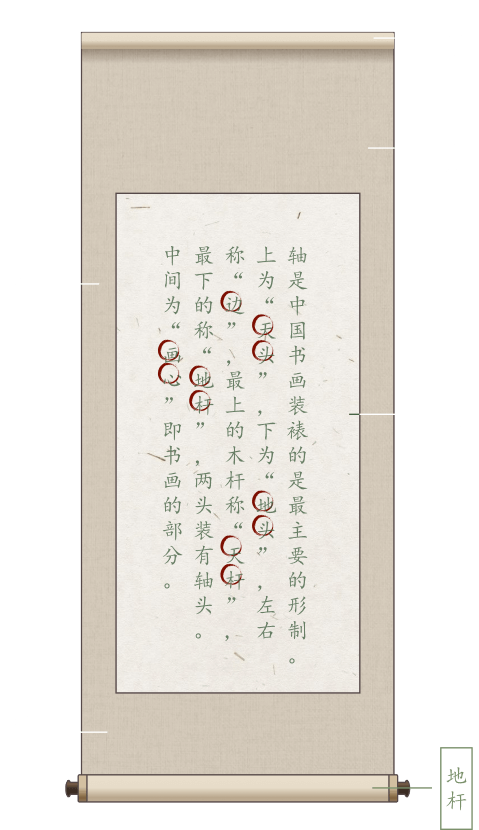 轴是中国书画装裱的是最主要的形制。
上为“天头”，下为“地头”，左右
称“边”，最上的木杆称“天杆”，
最下的称“地杆”，两头装有轴头。
中间为“画心”即书画的部分。
地杆